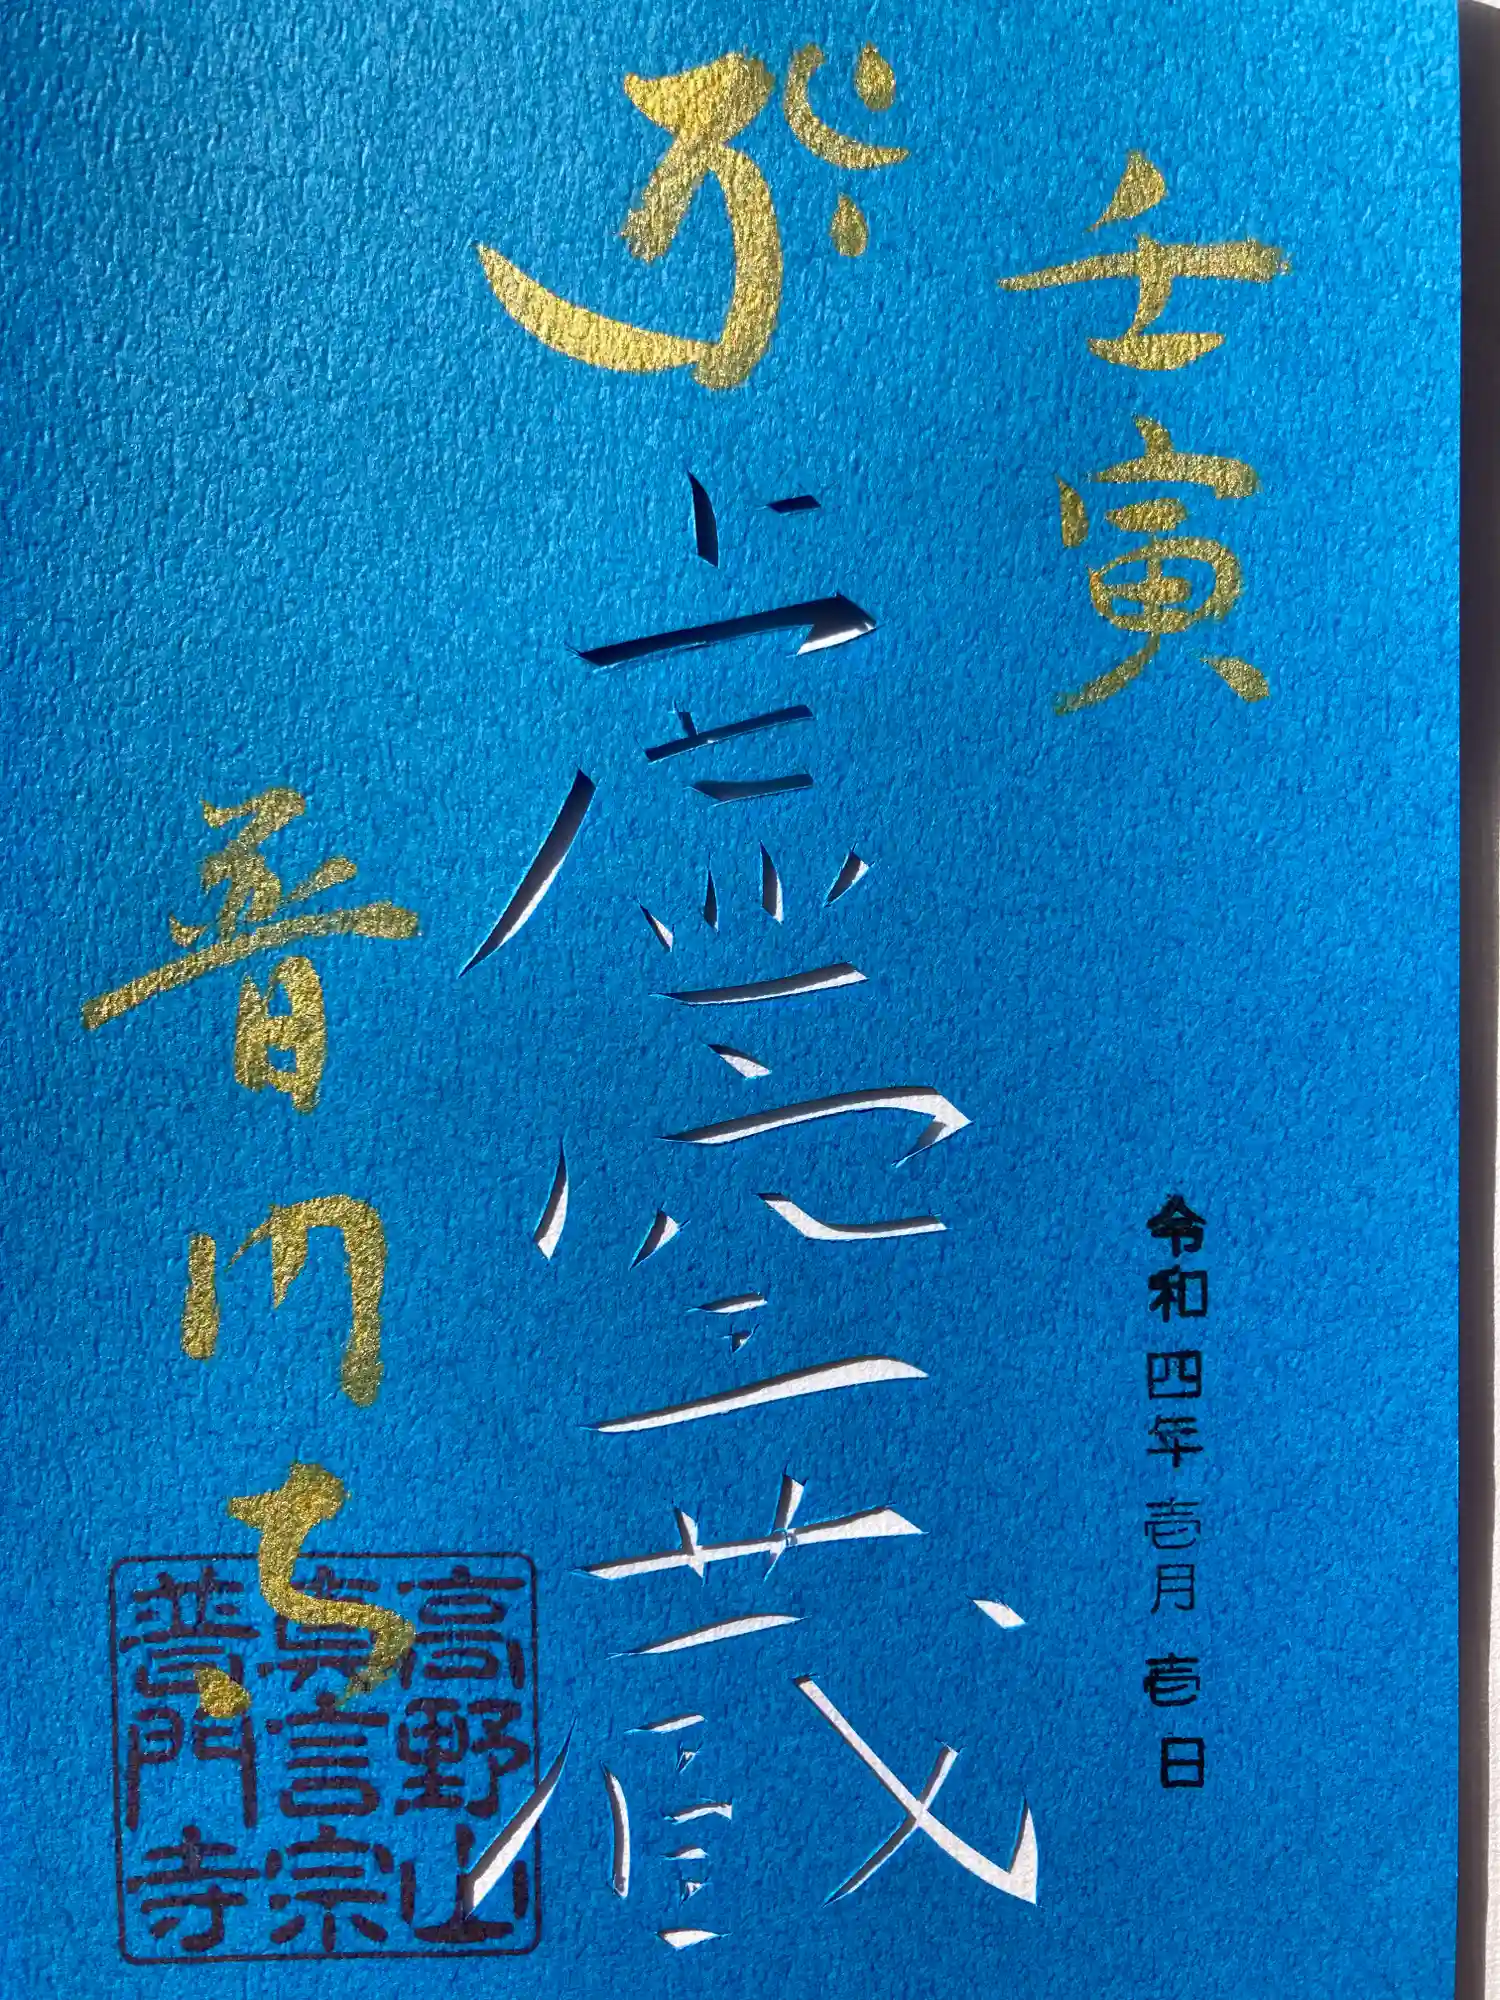 壬寅
令和四年壱月壱日
𑖝𑖿𑖨𑖯𑖾
虚空蔵
普門寺
高野山
真言宗
普門寺